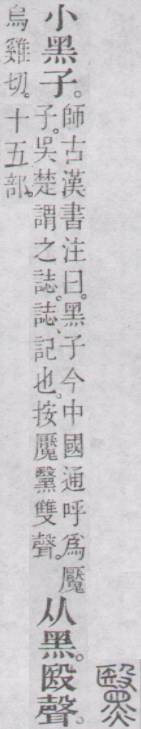 黳
小黑子。
師古漢書注曰。黑子今中國通呼爲黶
子。吳楚謂之誌。誌、記也。按黶黳雙聲。
从黑。殹聲。
烏雞切。十五部。